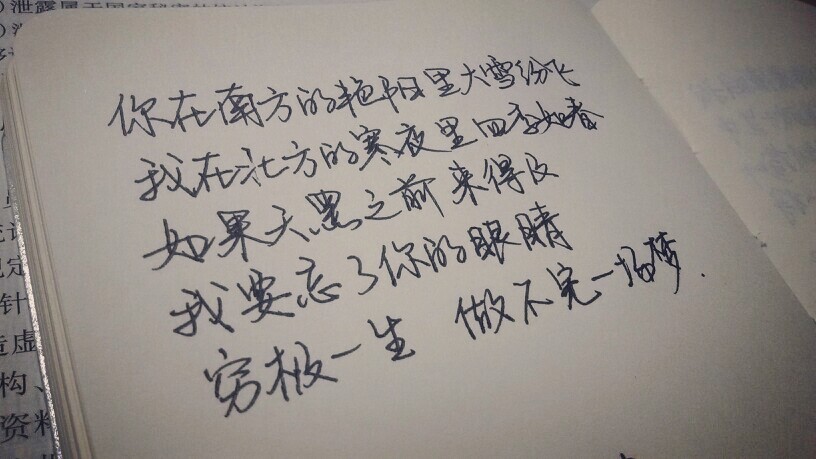 你在南方的艳阳里大雪纷飞
我在北方的寒夜里四季如春
如果天黑之前来得及
我要忘了你的眼睛
穷极一生 做不完一场梦.
泄露属于国家
定
针
造虚
构、
资料